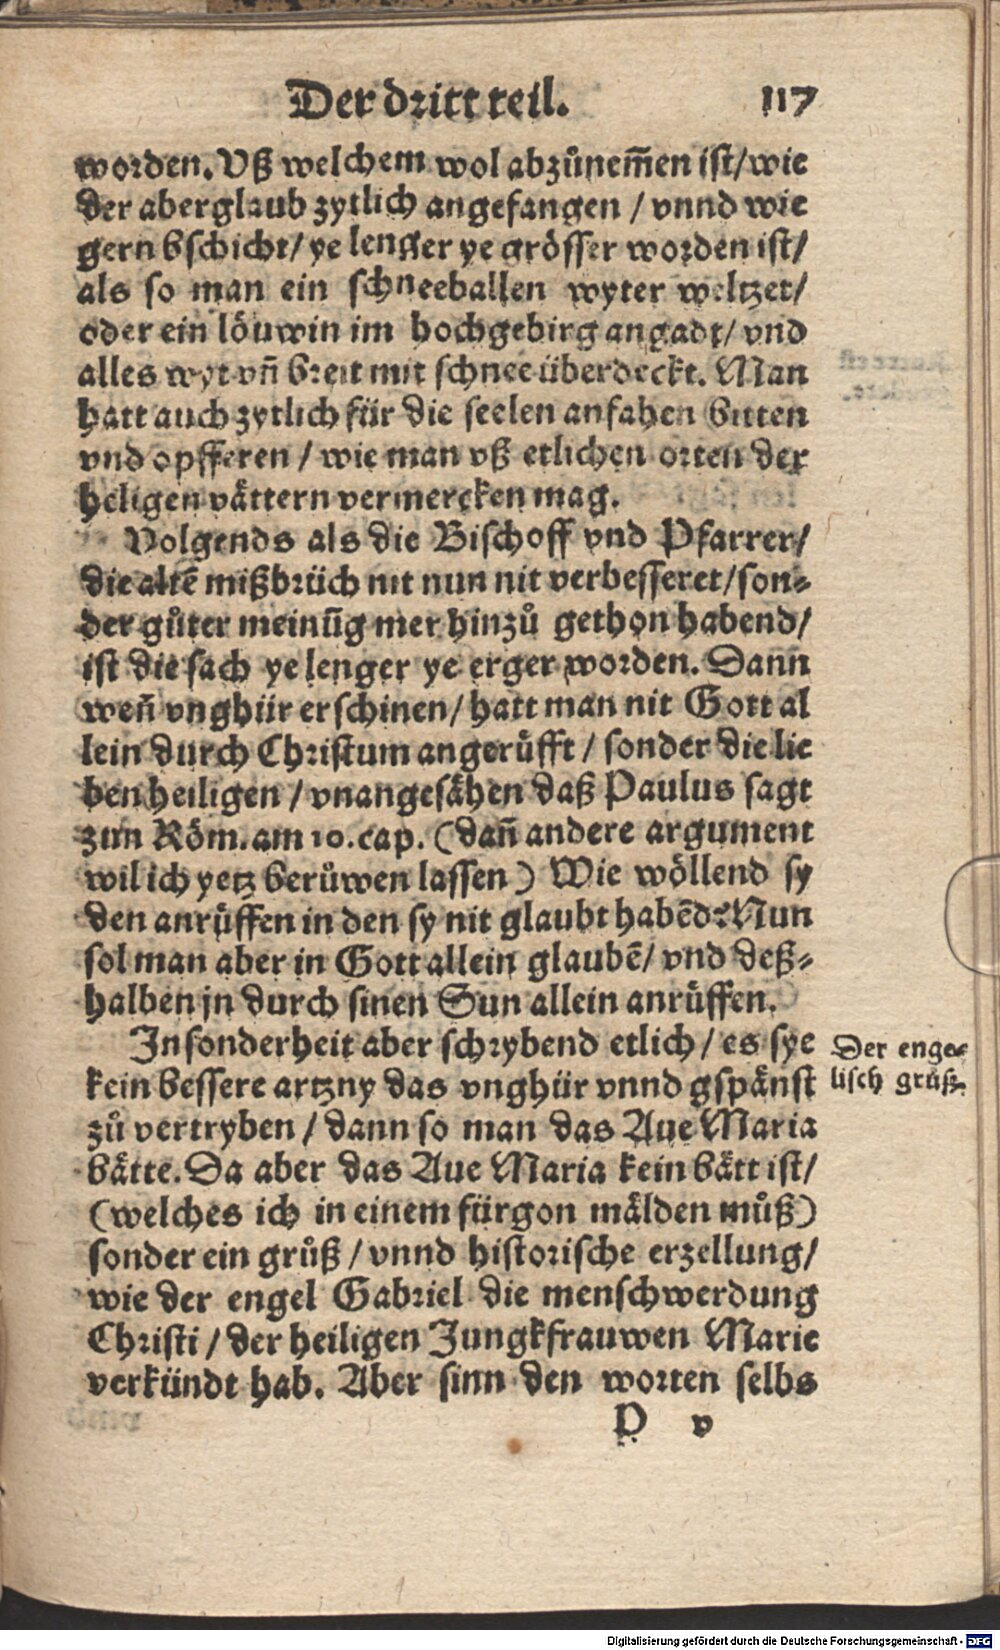 Der dritt teil.
117
worden. Vß welchem wol abzůnem̃en ist/ wie
der aberglaub zytlich angefangen / vnnd wie
gern bschicht/ ye lenger ye grösser worden ist/
als so man ein schneeballen wyter weltzet/
oder ein löuwin im hochgebirg angadt/ vnd
alles wyt vñ breit mit schnee überdeckt. Man
hatt auch zytlich für die seelen anfahen bitten
vnd opfferen / wie man vß etlichen orten der
heligen vättern vermercken mag.
Volgends als die Bischoff vnd Pfarrer/
die altẽ mißbrüch nit nun nit verbesseret/ son⸗
der gůter meinũg mer hinzů gethon habend/
ist die sach ye lenger ye erger worden. Dann
weñ vnghür erschinen/ hatt man nit Gott al
lein durch Christum angerüfft / sonder die lie
ben heiligen / vnangesähen daß Paulus sagt
zun Röm. am 10. cap. (dañ andere argument
wil ich yetz berůwen lassen) Wie wöllend sy
den anrüffen in den sy nit glaubt habẽd? Nun
sol man aber in Gott allein glaubẽ/ vnd deß⸗
halben jn durch sinen Sun allein anrüffen.
Insonderheit aber schrybend etlich / es sye
kein bessere artzny das vnghür vnnd gspänst
zů vertryben / dann so man das Aue Maria
bätte. Da aber das Aue Maria kein bätt ist/
(welches ich in einem fürgon mälden můß)
sonder ein grůß / vnnd historische erzellung/
wie der engel Gabriel die menschwerdung
Christi / der heiligen Jungkfrauwen Marie
verkündt hab. Aber sinn den worten selbs
Der enge⸗
lisch grůß.
P v
Digitalisierung gefördert durch die Deutsche Forschungsgemeinschaft - DFG